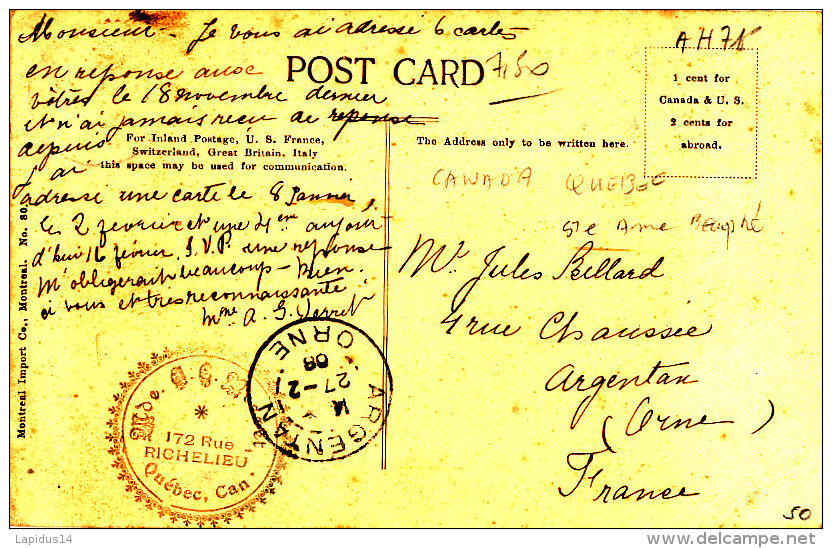 Monsieur - Je vous ai adresse 6 cartes
en reponse avec
vôtres le 18 novembre dernier
et n'ai jamais recu de reponse
depuis
j'ai
adresse une carte le 8 Janvier
les 2 fevrier et une 4em aujour
d'hui 16 fevrier. S.V.P. une reponse
m'obligerait beaucoup - bien
a vous et tres reconnaissante
Mme A. G.
POST CARD
7,50
AH71
For Inland Postage, U. S. France,
Switzerland, Great Britain, Italy
this space may be used for communication.
The Address only to be written here.
1 cent for
Canada & U. S.
2 cents for
abroad.
CANADA QUEBEC
Ste Anne Beaupré
Mr. Jules Billard
4 rue Chaussée
Argentan
(Orne)
France
Montreal Import Co., Montreal. No. 80.
172 Rue
RICHELIEU
Québec, Can.
ARGENTAN
ORNE
27-2
08
50
Lapidus14
www.delcampe.net